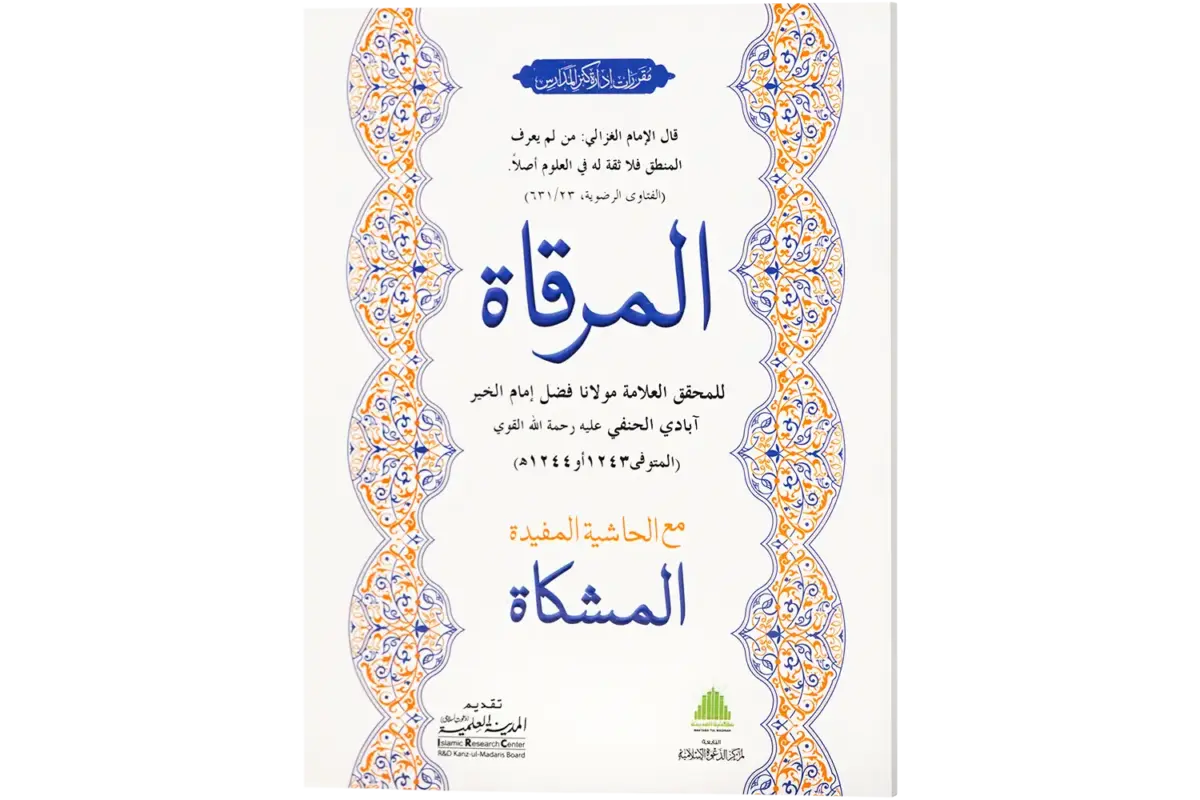 مُقررات إدارة كنز المدارس
قال الإمام الغزالي: من لم يعرف
المنطق فلا ثقة له في العلوم أصلاً.
(الفتاوى الرضوية، ٢٣/٦٣١)
المرقاة
للمحقق العلامة مولانا فضل إمام الخير
آبادي الحنفي عليه رحمة الله القوي
(المتوفى ١٢٤٣ أو ١٢٤٤ه)
مع الحاشية المفيدة
المشكاة
تقديم
المدينة العلمية
Islamic Research Center
R&D Kanz-ul-Madaris Board
مكتبة المدينة
MAKTABA TUL MADINAH
التابعة
لمركز الدعوة الإسلامية